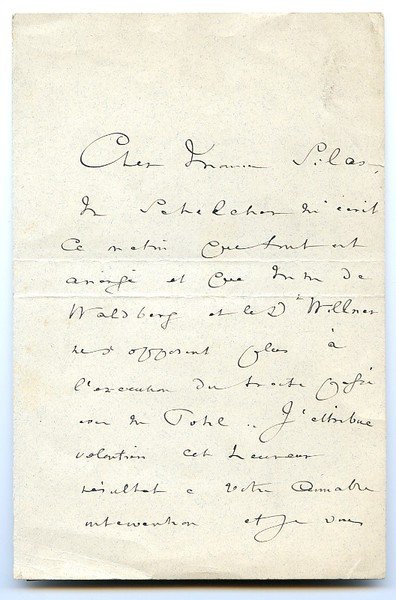 Cher Monsieur Silas,
M Schelcher m'écrit
ce matin que tout est
arrangé et que MM de
Waldberg et le Dr Willner
ne s'opposent plus à
l'exécution du traité passé
avec M Pohl .. J'attribue
volontiers cet heureux
résultat à votre aimable
intervention et je vous